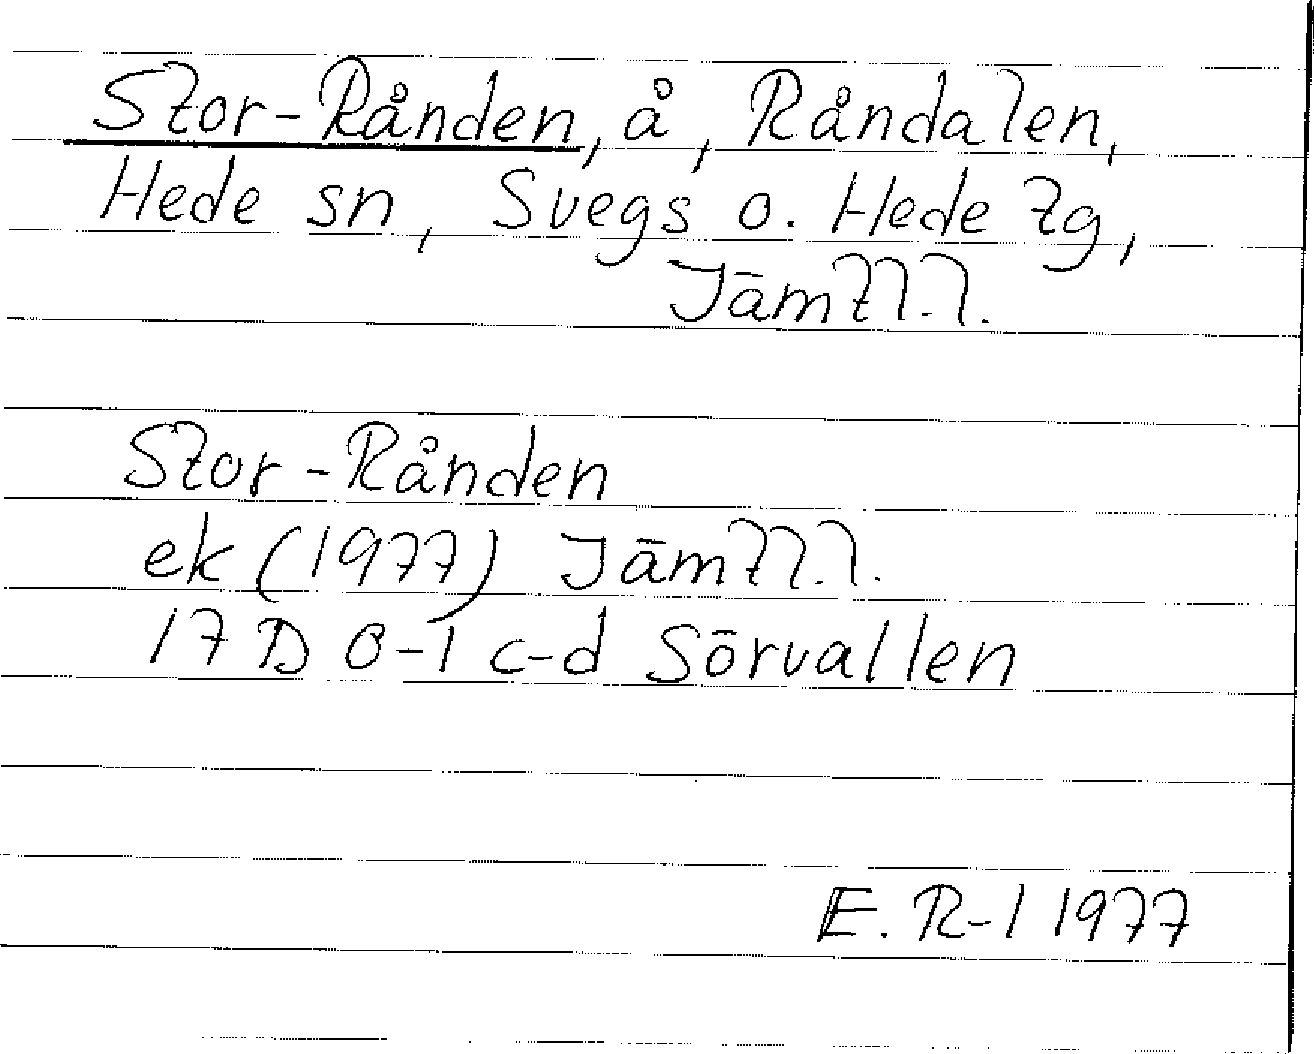 Stor-Rånden, å, Råndalen,
Hede sn, Svegs o. Hede tg,
Jämtl.l.
Stor-Rånden
ek (1977) Jämtl.l.
17 D 0-1 c-d Sörvallen
E. R-l 1977